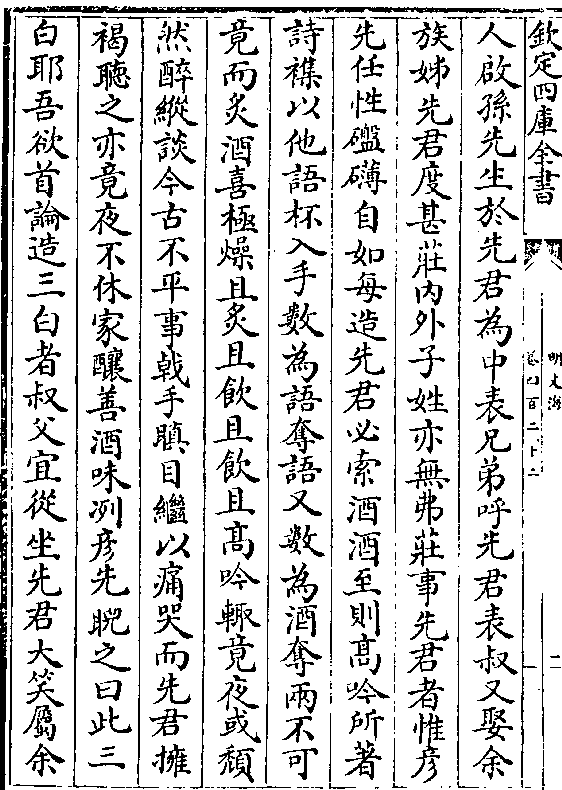 欽定四庫全書
明文海
卷四百二十二
二
人啟孫先生於先君為中表兄弟呼先君表叔又娶余
族姊先君度甚莊内外子姓亦無弗莊事先君者惟彦
先任性礚礴自如每造先君必索酒酒至則髙吟所著
詩襍以他語杯入手數為語奪語又數為酒奪兩不可
竟而炙酒喜極燥且炙且飲且飲且髙吟輙竟夜或頹
然醉縱談今古不平事戟手瞋目繼以痛哭而先君擁
褐聽之亦竟夜不休家釀善酒味冽彦先睨之曰此三
白耶吾欲首論造三白者叔父宜從坐先君大笑屬余